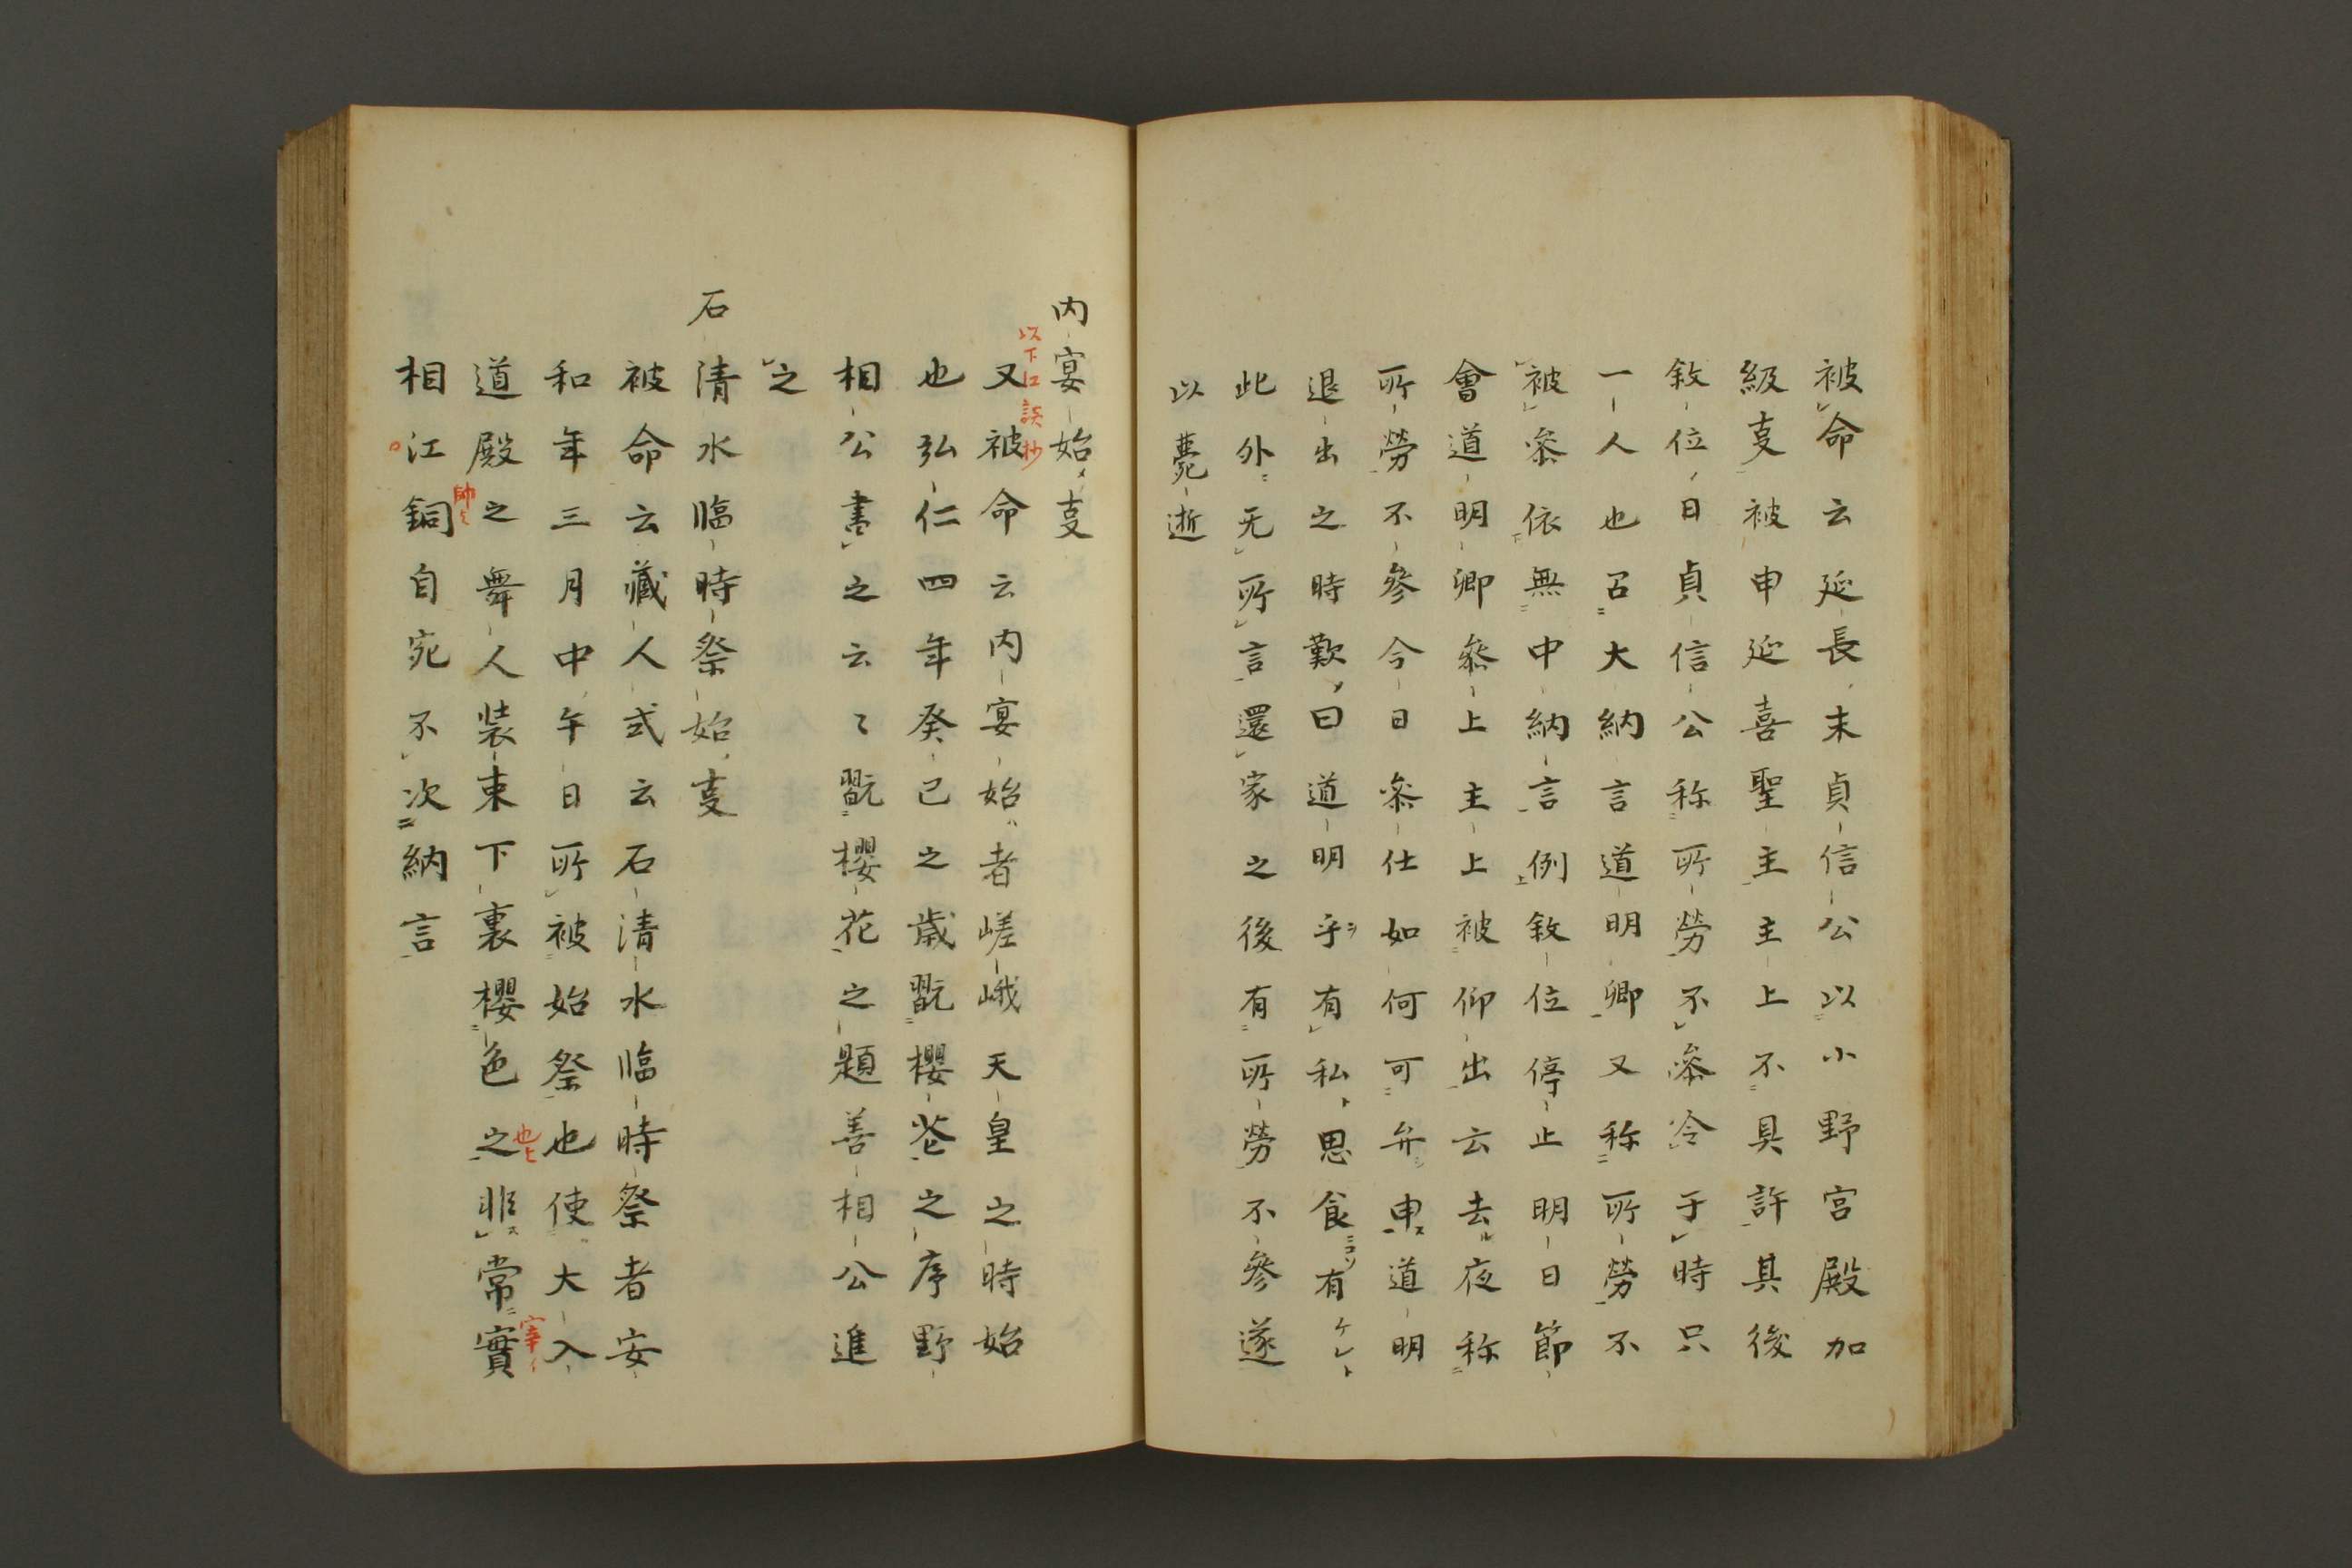 被命云延長末貞信公以小野宮殿加
級叓被申延喜聖主主上不具許其後
敘位日貞信公称所勞不參令于時只
一人也召大納言道明卿又称所勞不
被參依無中納言例敘位停止明日節
會道明卿參上主上被仰出云去夜称
所勞不參今日參仕如何可弁申道明
退出之時歎曰道明乎有私思食有ケレト
此外无所言還家之後有所勞不參遂
以薨逝
内宴始叓
以下江談抄
又被命云内宴始者嵯峨天皇之時始
也弘仁四年癸已之歳翫櫻花之序野
相公書之云々翫櫻花之題善相公進
之
石清水臨時祭始叓
被命云藏人式云石清水臨時祭者安
和年三月中午日所被始祭也使大入
道殿之舞人装束下裏櫻色之非常實
也ヒ
宰イ
相江銅自宛不次納言
帥ヒ